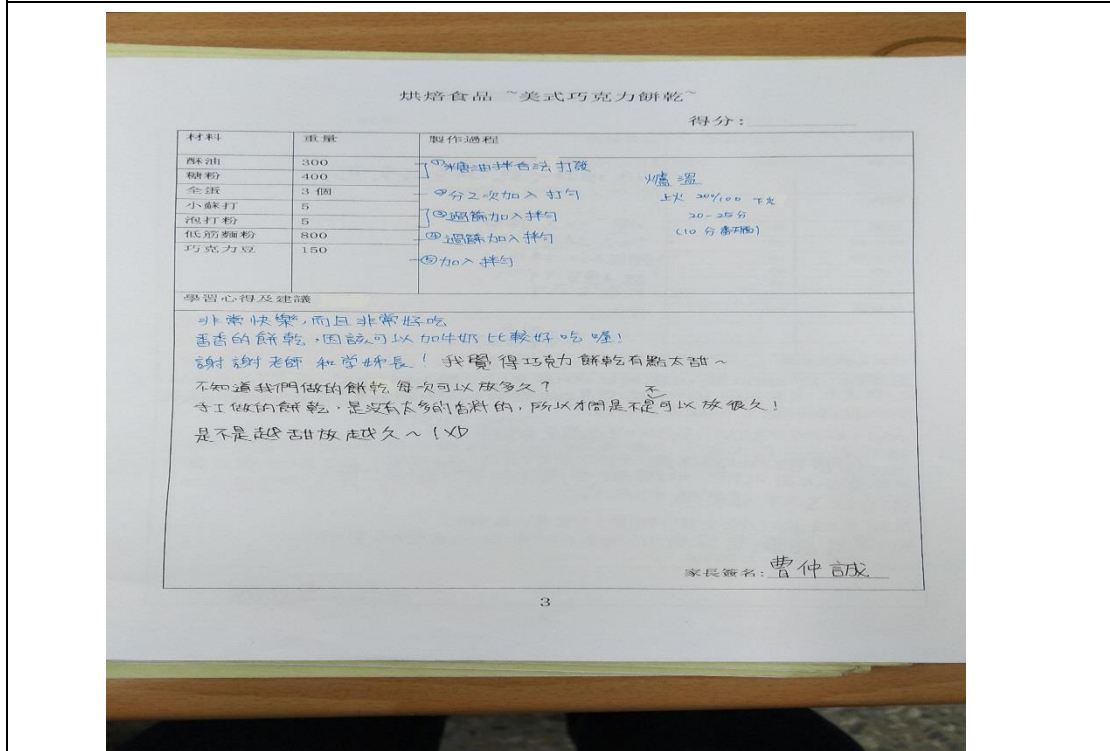 烘焙食品 ~美式巧克力餅乾~
得分：
材料 重量 製作過程
酥油 300 ①糖油拌合法打發
糖粉 400
全蛋 3 個 ②分之次加入打勻
小蘇打 5 ③過篩加入拌勻
泡打粉 5
低筋麵粉 800 ④過篩加入拌勻
巧克力豆 150 ⑤加入拌勻
爐溫
上火 200/100 下火
20-25分
(10分 面)
學習心得及建議
非常快樂，而且非常好吃
香香的餅乾，因該可以加牛奶比較好吃喔!
謝謝老師和學姊長! 我覺得巧克力餅乾有點太甜~
不知道我們做的餅乾每次可以放多久?
手工做的餅乾，是沒有太多的香料的，所以才問是不是可以放很久!
是不是越甜放越久~!XD
家長簽名: 曹仲誠
3